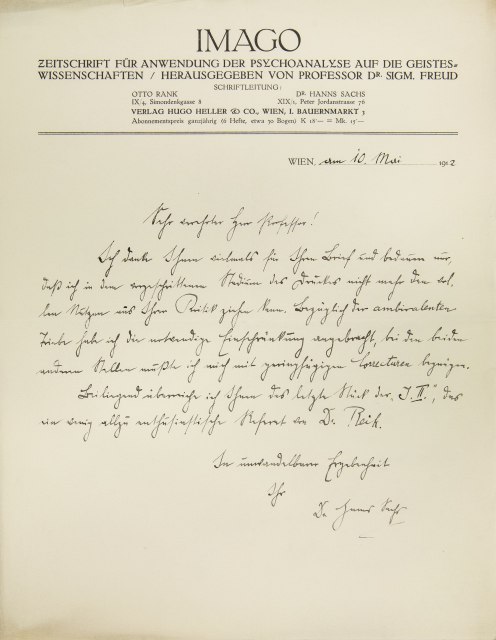 IMAGO
ZEITSCHRIFT FÜR ANWENDUNG DER PSYCHOANALYSE AUF DIE GEISTES-
WISSENSCHAFTEN / HERAUSGEGEBEN VON PROFESSOR DR. SIGM. FREUD
SCHRIFTLEITUNG:
OTTO RANK DR. HANNS SACHS
IX/4, Simondenkgasse 8 XIX/1, Peter Jordanstrasse 76
VERLAG HUGO HELLER & CO., WIEN, I. BAUERNMARKT 3
Abonnementspreis ganzjährig (6 Hefte, etwa 30 Bogen) K 18·— = Mk. 15·—
WIEN, am 10. Mai 1912
Sehr verehrter Herr Professor!
Ich danke Ihnen vielmals für Ihren Brief und bedauere nur,
daß ich in dem vorgeschrittenen Stadium des Druckes nicht mehr den vol-
len Nutzen aus Ihrer Kritik ziehen kann. Bezüglich der ambivalenten
Triebe habe ich die notwendige Einschränkung angebracht, bei den beiden
anderen Stellen mußte ich mich mit geringfügigen Correcturen begnügen.
Beiliegend überreiche ich Ihnen das letzte Stück der „I. II", das
ein wenig allzu enthusiastische Referat von Dr. Reik.
In unwandelbarer Ergebenheit
Ihr
Dr. Hanns Sachs